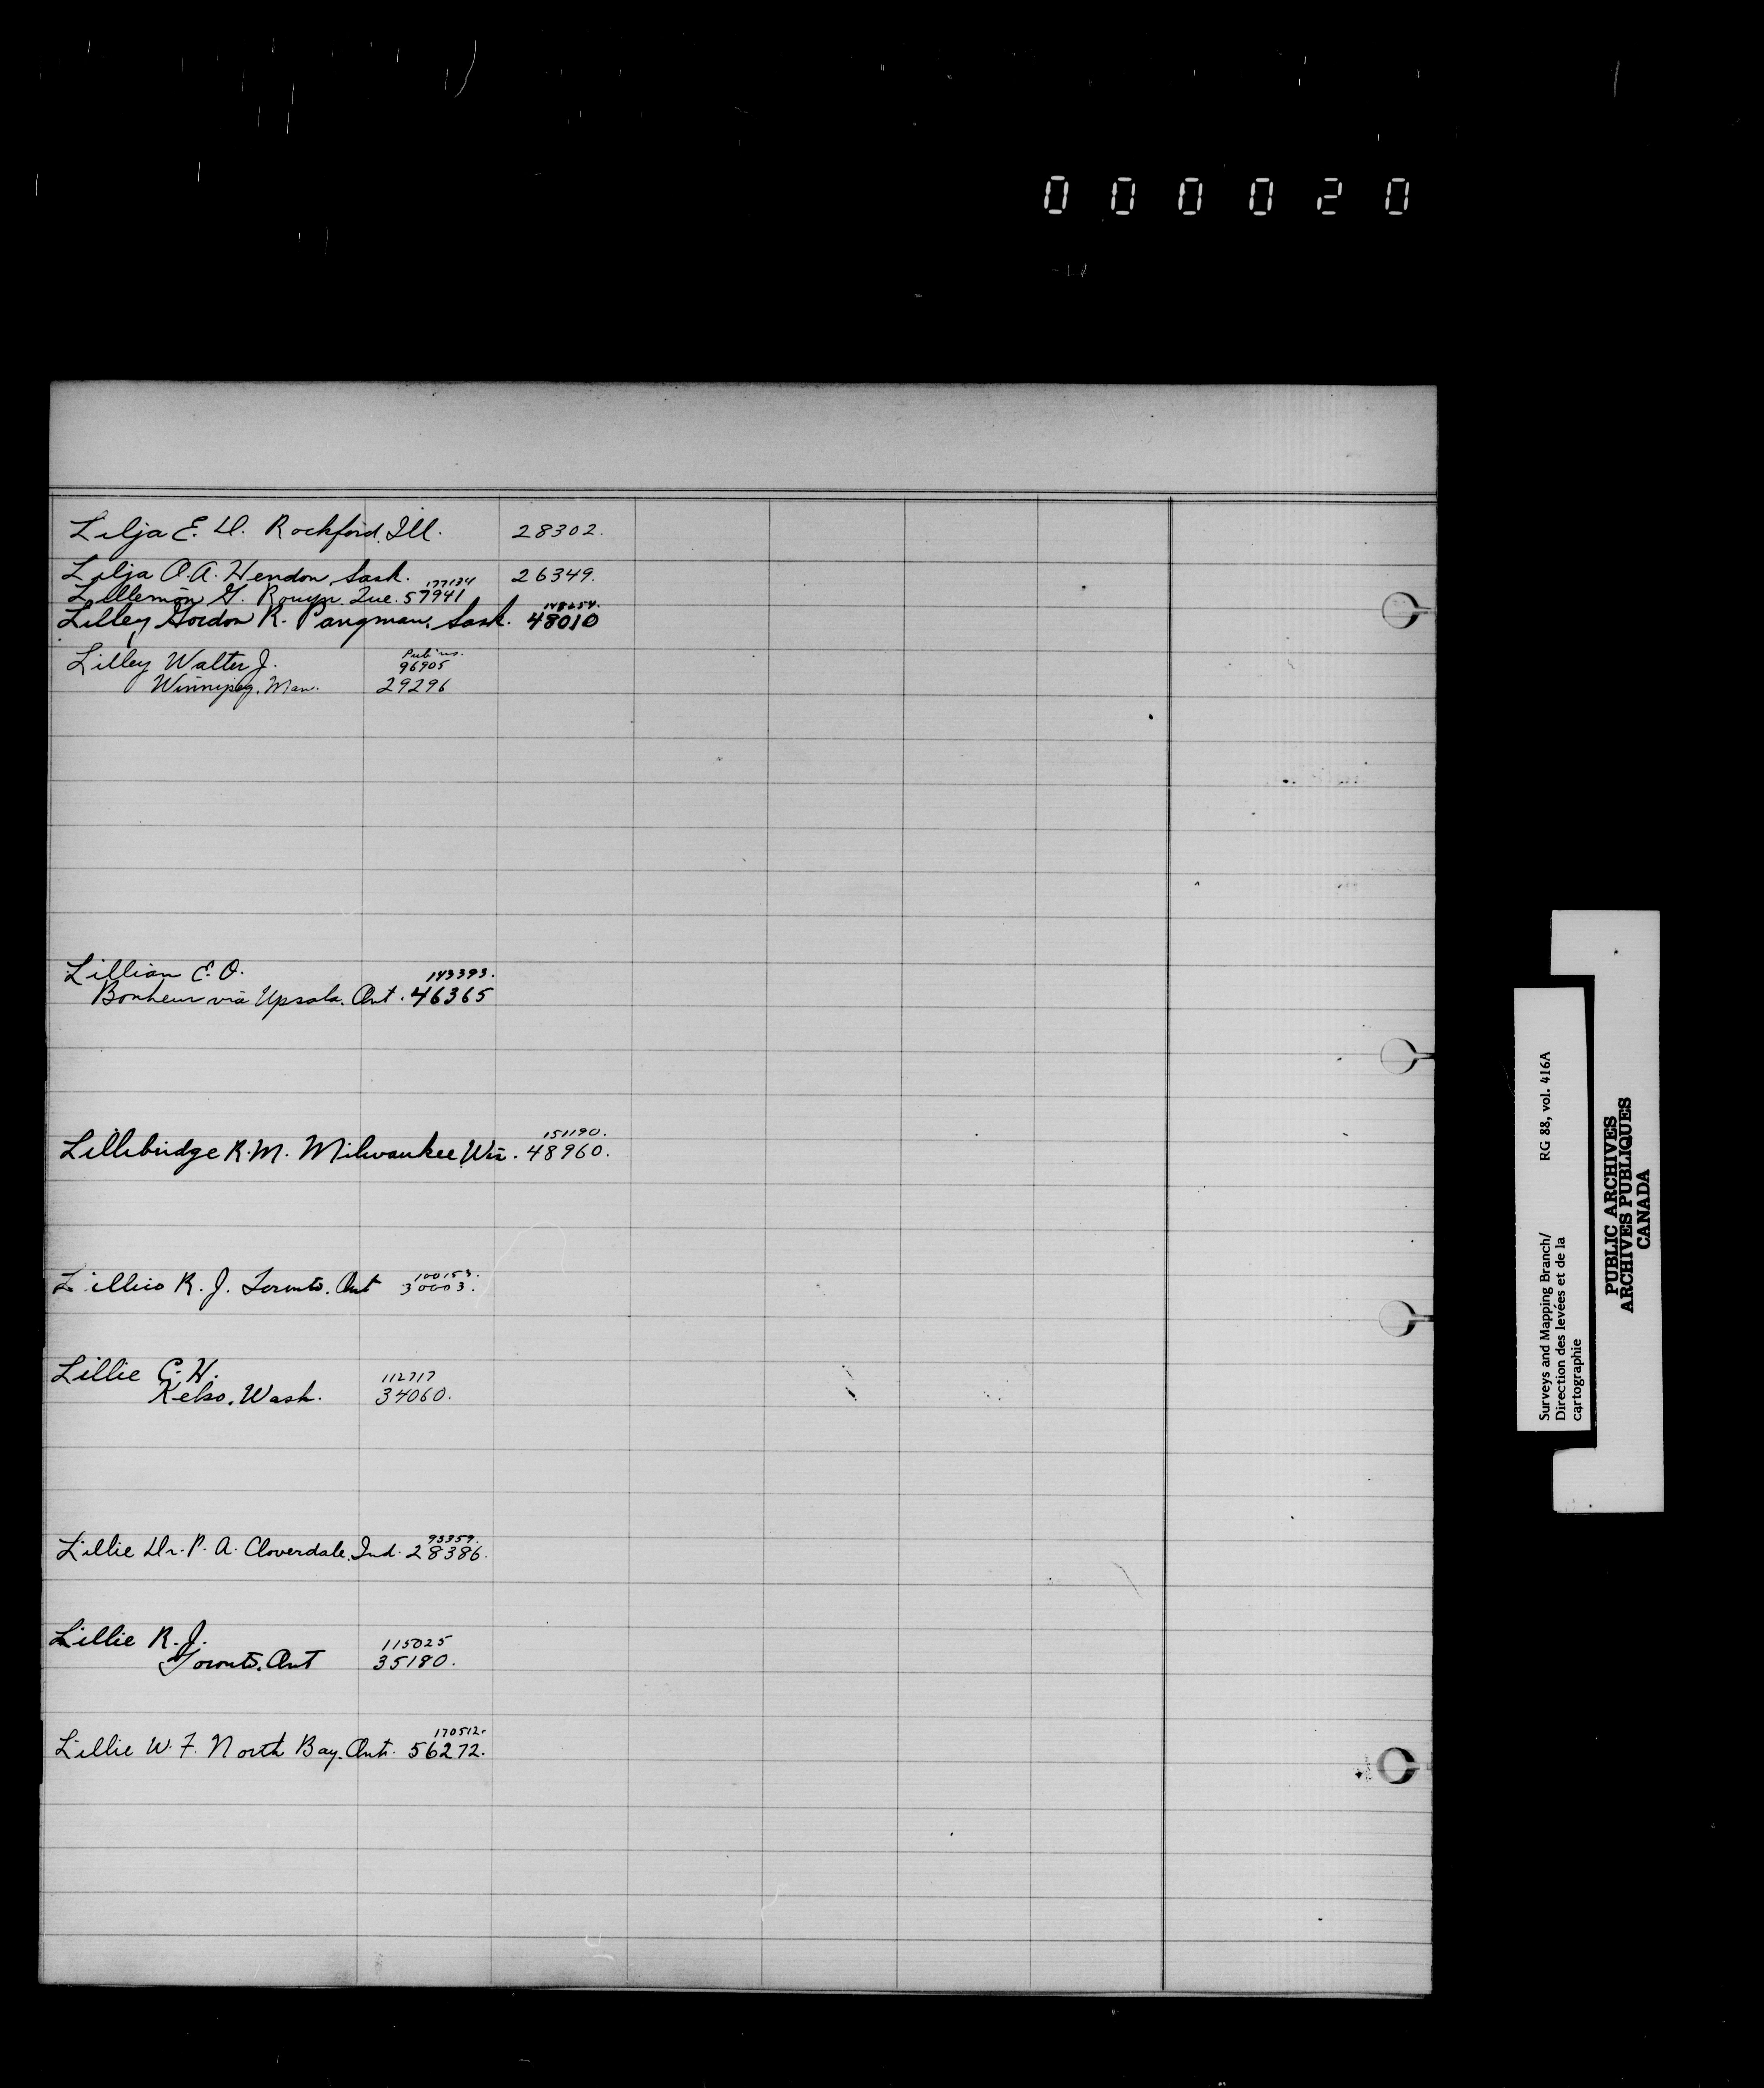 000020
Lilja E. D. Rockford, Ill. 28302.
Lilja O. A. Hendon, Sask. 26349.
177134
Lillemon G. Rouyn. Que. 57941
148254.
Lilley Gordon R. Pangman, Sask. 48010
Lilley Walter J.
96905
Winnipeg, Man. 29296
Lillian E. O. 143393.
Bonheur via Upsala. Ont. 46365
151190.
Lillibridge R. M. Milwaukee Wis. 48960.
100153.
Lillico R. J. Toronto. Ont 30003.
Lillie C. H. 112717
Kelso, Wash. 34060.
93359.
Lillie Dr. P. A. Cloverdale, Ind. 28386.
Lillie R. J. 115025
Toronto, Ont 35180.
170512.
Lillie W. F. North Bay, Ont. 56272.
Surveys and Mapping Branch/ RG 88, vol. 416A
Direction des levées et de la
cartographie
PUBLIC ARCHIVES
ARCHIVES PUBLIQUES
CANADA